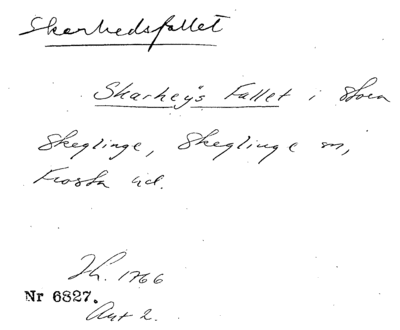 Skarhedsfallet
Skarhey's Fallet i Stora
Skeglinge, Skeglinge sn,
Frosta hd.
Jh. 1766
Nr 6827.
Akt 2.